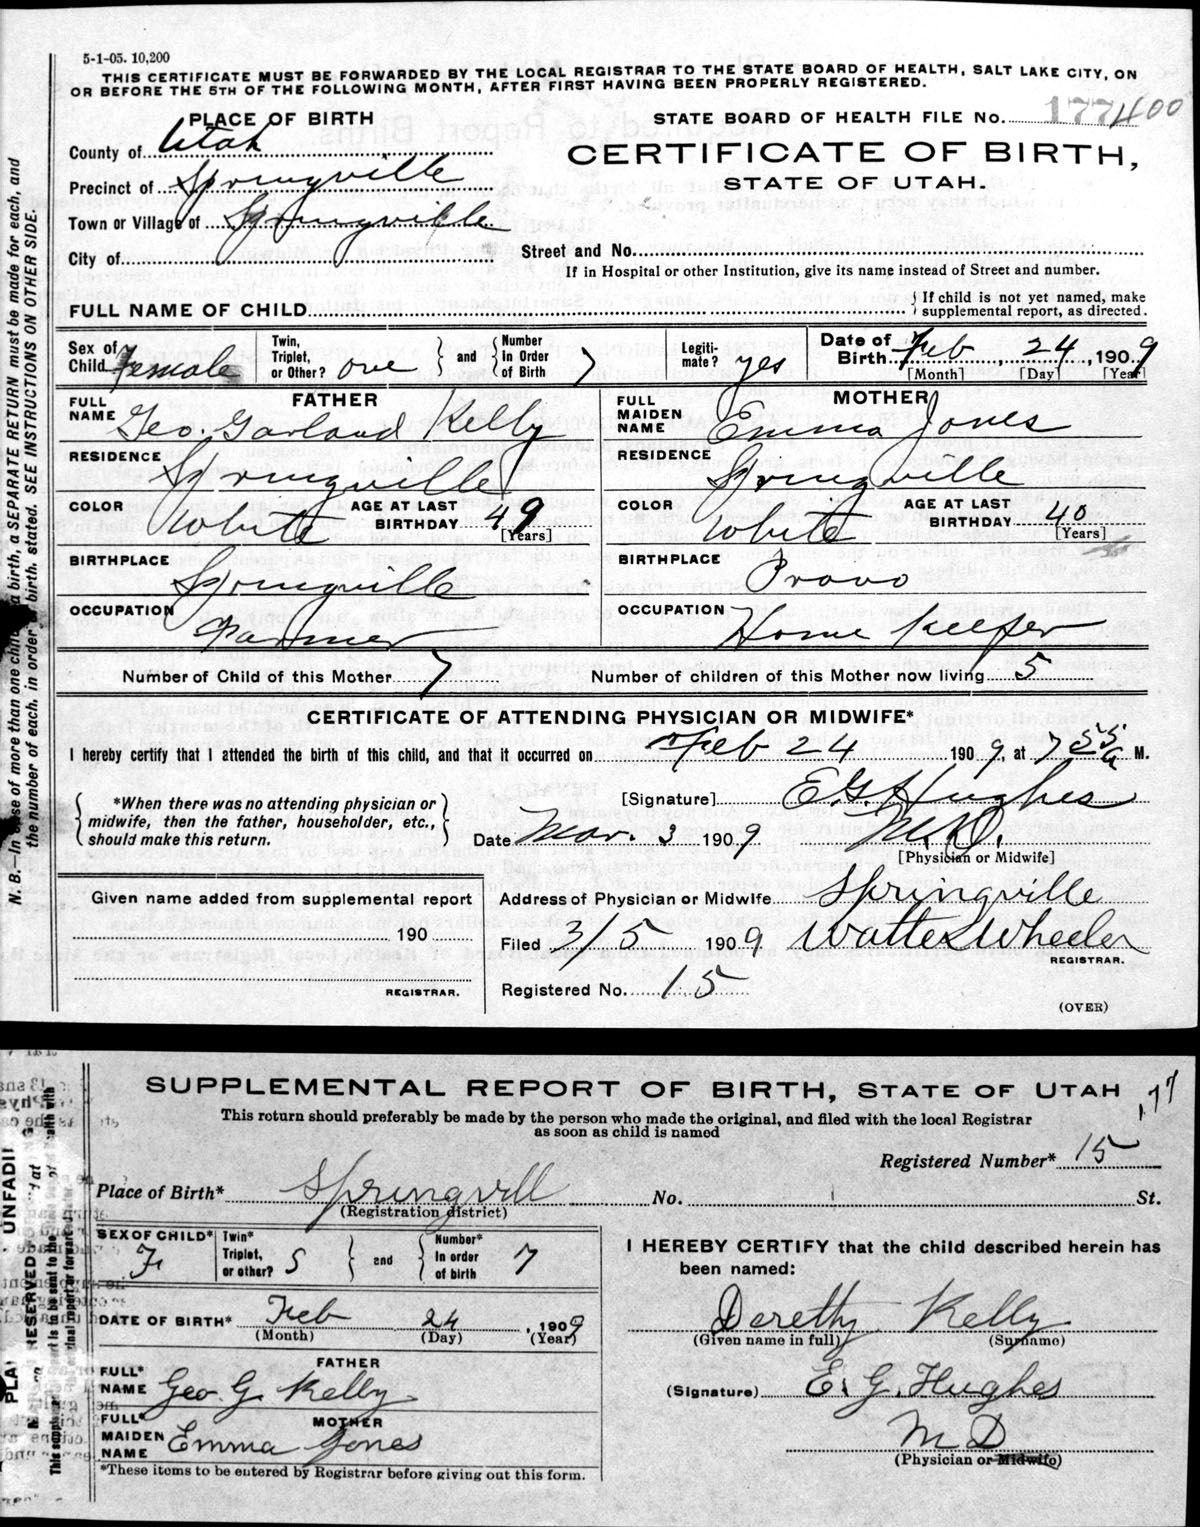 5-1-05. 10,200
THIS CERTIFICATE MUST BE FORWARDED BY THE LOCAL REGISTRAR TO THE STATE BOARD OF HEALTH, SALT LAKE CITY, ON
OR BEFORE THE 5TH OF THE FOLLOWING MONTH, AFTER FIRST HAVING BEEN PROPERLY REGISTERED.
PLACE OF BIRTH
STATE BOARD OF HEALTH FILE No. 177 400
County of Utah
CERTIFICATE OF BIRTH,
Precinct of Springville
STATE OF UTAH.
Town or Village of Springville
City of
Street and No.
If in Hospital or other Institution, give its name instead of Street and number.
FULL NAME OF CHILD
If child is not yet named, make
supplemental report, as directed.
Sex of Child Female
Twin, Triplet, or Other? one and Number in Order of Birth 7
Legiti-mate? yes
Date of Birth Feb, 24, 1909
[Month] [Day] [Year]
FATHER
FULL NAME Geo. Garland Kelly
RESIDENCE Springville
COLOR White AGE AT LAST BIRTHDAY 49
[Years]
BIRTHPLACE Springville
OCCUPATION Farmer
MOTHER
FULL MAIDEN NAME Emma Jones
RESIDENCE Springville
COLOR White AGE AT LAST BIRTHDAY 40
[Years]
BIRTHPLACE Provo
OCCUPATION Home Keeper
Number of Child of this Mother 7 Number of children of this Mother now living 5
CERTIFICATE OF ATTENDING PHYSICIAN OR MIDWIFE*
I hereby certify that I attended the birth of this child, and that it occurred on Feb 24 1909, at 7 55 a M.
*When there was no attending physician or
midwife, then the father, householder, etc.,
should make this return.
[Signature] E. G. Hughes
Date Mar. 3 1909 M.D.
[Physician or Midwife]
Given name added from supplemental report
190
REGISTRAR.
Address of Physician or Midwife Springville
Filed 3/5 1909 Walter Wheeler
REGISTRAR.
Registered No. 15
(OVER)
N. B.—In case of more than one child at a birth, a SEPARATE RETURN must be made for each, and
the number of each, in order of birth, stated. SEE INSTRUCTIONS ON OTHER SIDE.
SUPPLEMENTAL REPORT OF BIRTH, STATE OF UTAH
177
This return should preferably be made by the person who made the original, and filed with the local Registrar
as soon as child is named
Registered Number* 15
Place of Birth* Springvill No. St.
(Registration district)
SEX OF CHILD* F. Twin* Triplet, or other? S and Number* In order of birth 7
DATE OF BIRTH* Feb 24, 1909
(Month) (Day) (Year)
FATHER
FULL* NAME Geo. G. Kelly
MOTHER
FULL* MAIDEN NAME Emma Jones
*These items to be entered by Registrar before giving out this form.
I HEREBY CERTIFY that the child described herein has
been named:
Deretty Kelly
(Given name in full) (Surname)
(Signature) E. G. Hughes
M D
(Physician or Midwife)